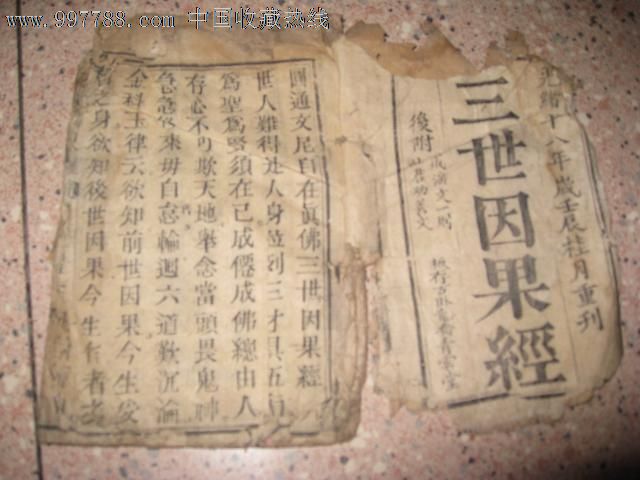 www.997788.com 中国收藏热线
光緒十八年歲壬辰桂月重刊
三世因果經
後附
圓通文尼自在眞佛三世因果經
世人難得此人身並列三才具五行
爲聖爲賢須在已成僊成佛總由人
存心不可欺天地舉念當頭畏鬼神
急急修來毋自怠輪迴六道歎沉淪
金科玉律云欲知前世因果今生受
之身欲知後世因果今生者